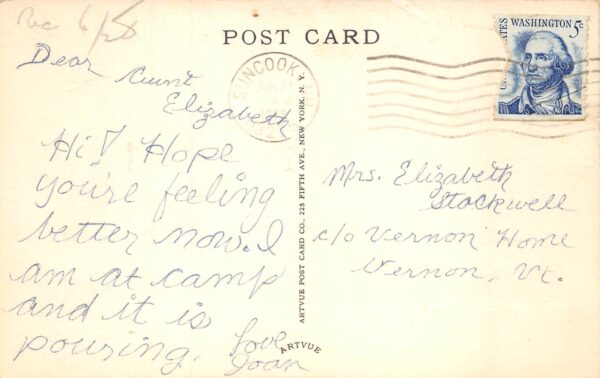 Rec 6/28
POST CARD
WASHINGTON 5c
SUNCOOK
JUN 27
Dear Aunt
Elizabeth
Hi! Hope
you're feeling
better now. I
am at camp
and it is
pouring. Love
Joan
ARTVUE POST CARD CO., 225 FIFTH AVE., NEW YORK, N. Y.
ARTVUE
Mrs. Elizabeth
Stockwell
c/o Vernon Home
Vernon, Vt.